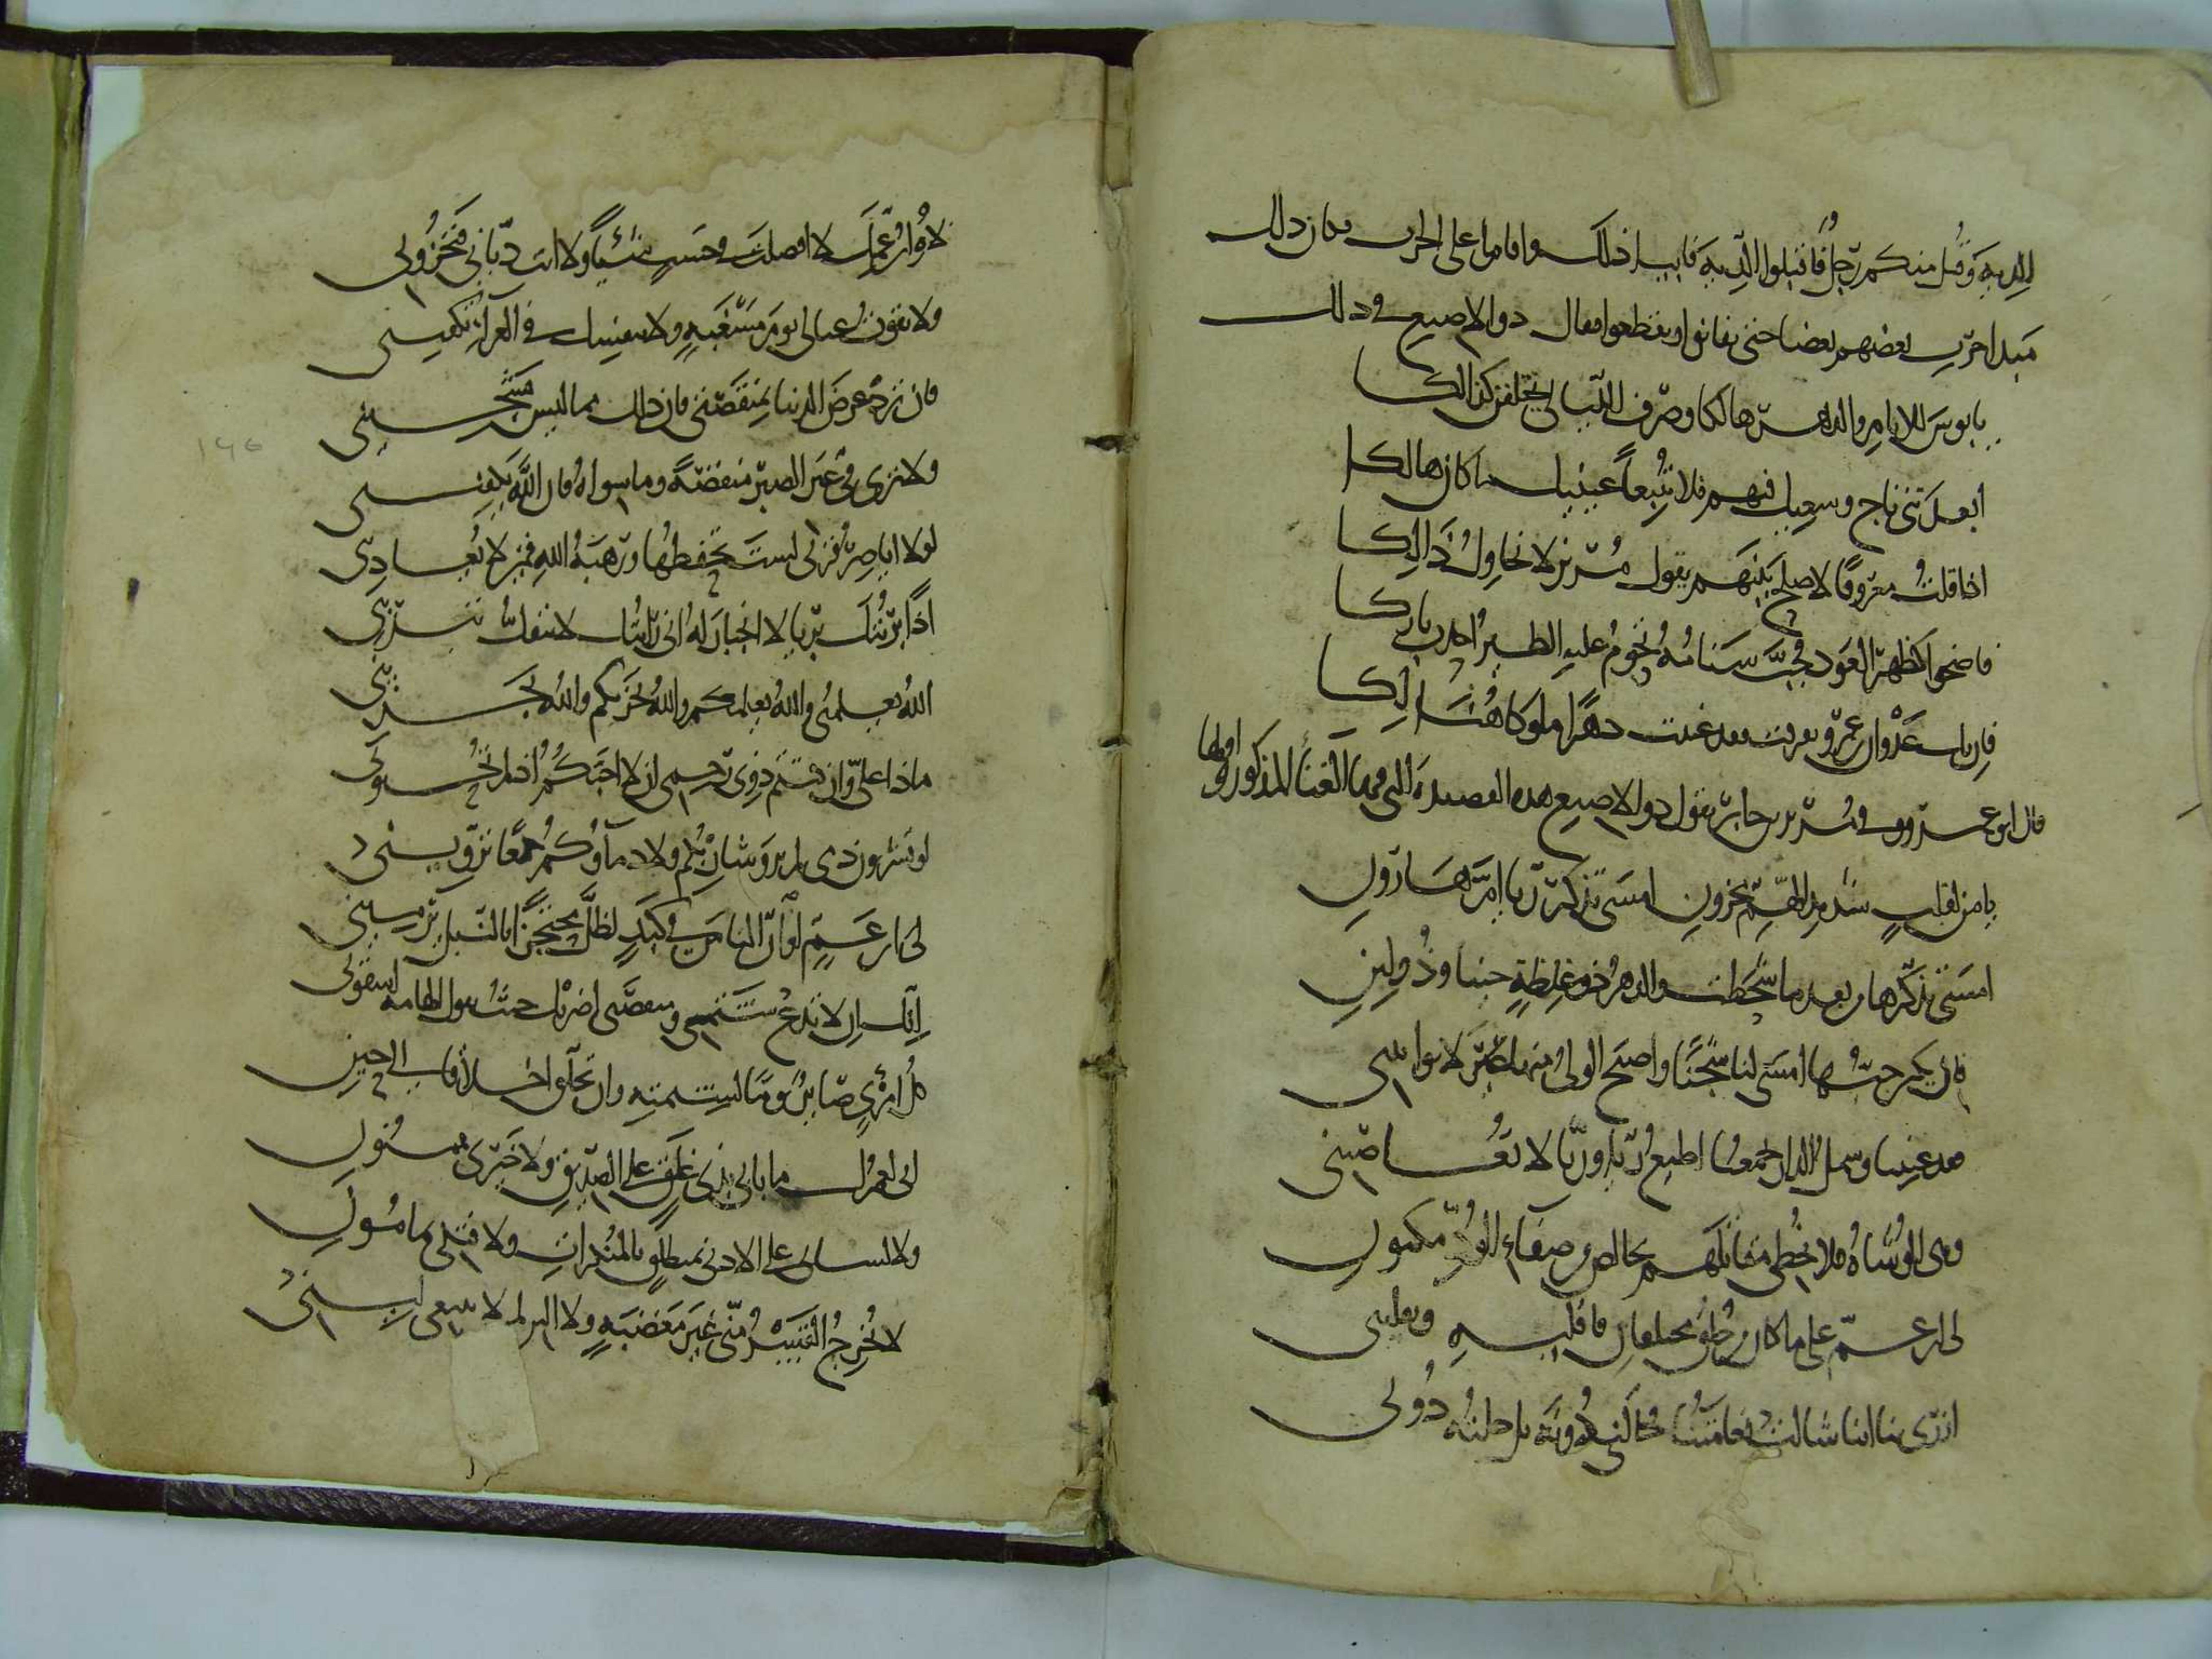 الدية وقتل منكم رجل فاقبلوا الدية فابيا ذلك واقاما على الحرب فكان ذلك
مبدا حرب بعضهم بعضا حتى تفانوا وتقطعوا فقال ذو الاصبع فى ذلك
يا بوس للايام والدهر هالكا وصرف الليالى يختلفن كذالكا
أبعد بنى ناج وسعيك فيهم فلا تتبعاً عينيك ما كان هالكا
اذا قلت معروفا لاصلح بينهم يقول مرير لا نحاول ذالكا
فاضحوا كظهر العود جب سنامه تحوم عليه الطير احدب باركا
فان تك عدوان بن عمرو تفرقت فقد غنت دهرا ملوكا هنالكا
قال ابو عمرو وفى مرير بن جابر يقول ذو الاصبع هذه القصيدة التى فيها الغناء المذكور اولها
يا من لقلب شديد الهم محزون امسى تذكر ريا ام هارون
امسى تذكرها من بعد ما شحطت والدهر ذو غلظة حينا وذو لين
فان يكن حبها امسى لنا شجنا واصبح الولى منها لا يواتينى
فقد غنينا وشمل الدار يجمعنا اطيع ريا وريا لا تعاصينى
نرمى الوشاة فلا نخطى مقاتلهم بخالص من صفاء الود مكنون
لى ابن عم على ما كان من خلق مختلفان فاقليه ويقلينى
ازرى بنا اننا شالت نعامتنا فخالنى دونه بل خلته دونى
لاه ابن عمك لا افضلت فى حسب شيئاً ولا انت ديانى فتخزونى
ولا تقوت عيالى يوم مسغبة ولا بنفسك فى العزاء تكفينى
فان ترد عرض الدنيا بمنقصتى فان ذلك مما ليس يشجينى
ولا ترى فى غير الصبر منقصة وما سواه فان الله يكفينى
لولا اياصر قربى لست تحفظها ورهبة الله فيمن لا يعادينى
اذا بريتك بريا لا انجبار له انى رايتك لا تنفك تبرينى
الله يعلمنى والله يعلمكم والله يجزيكم والله يجزينى
ماذا على وان كنتم ذوى رحمى ان لا احبكم اذ لم تحبونى
لو تشربون دمى لم يرو شاربكم ولا دماؤكم جمعا تروينى
لى ابن عم لو أن الناس فى كبد لظل محتجزا بالنبل يرمينى
انك ان لا تدع شتمى ومنقصتى اضربك حيث تقول الهامة اسقونى
كل امرئ صائر يوما لشيمته وان تخلق اخلاقا الى حين
انى لعمرك ما بابى بذى غلق على الصديق ولا خيرى بممنون
ولا لسانى على الادنى بمنطلق بالمنكرات ولا فتكى بمامون
لا يخرج القسر منى غير مغضبة ولا الين لمن لا يبتغى لينى